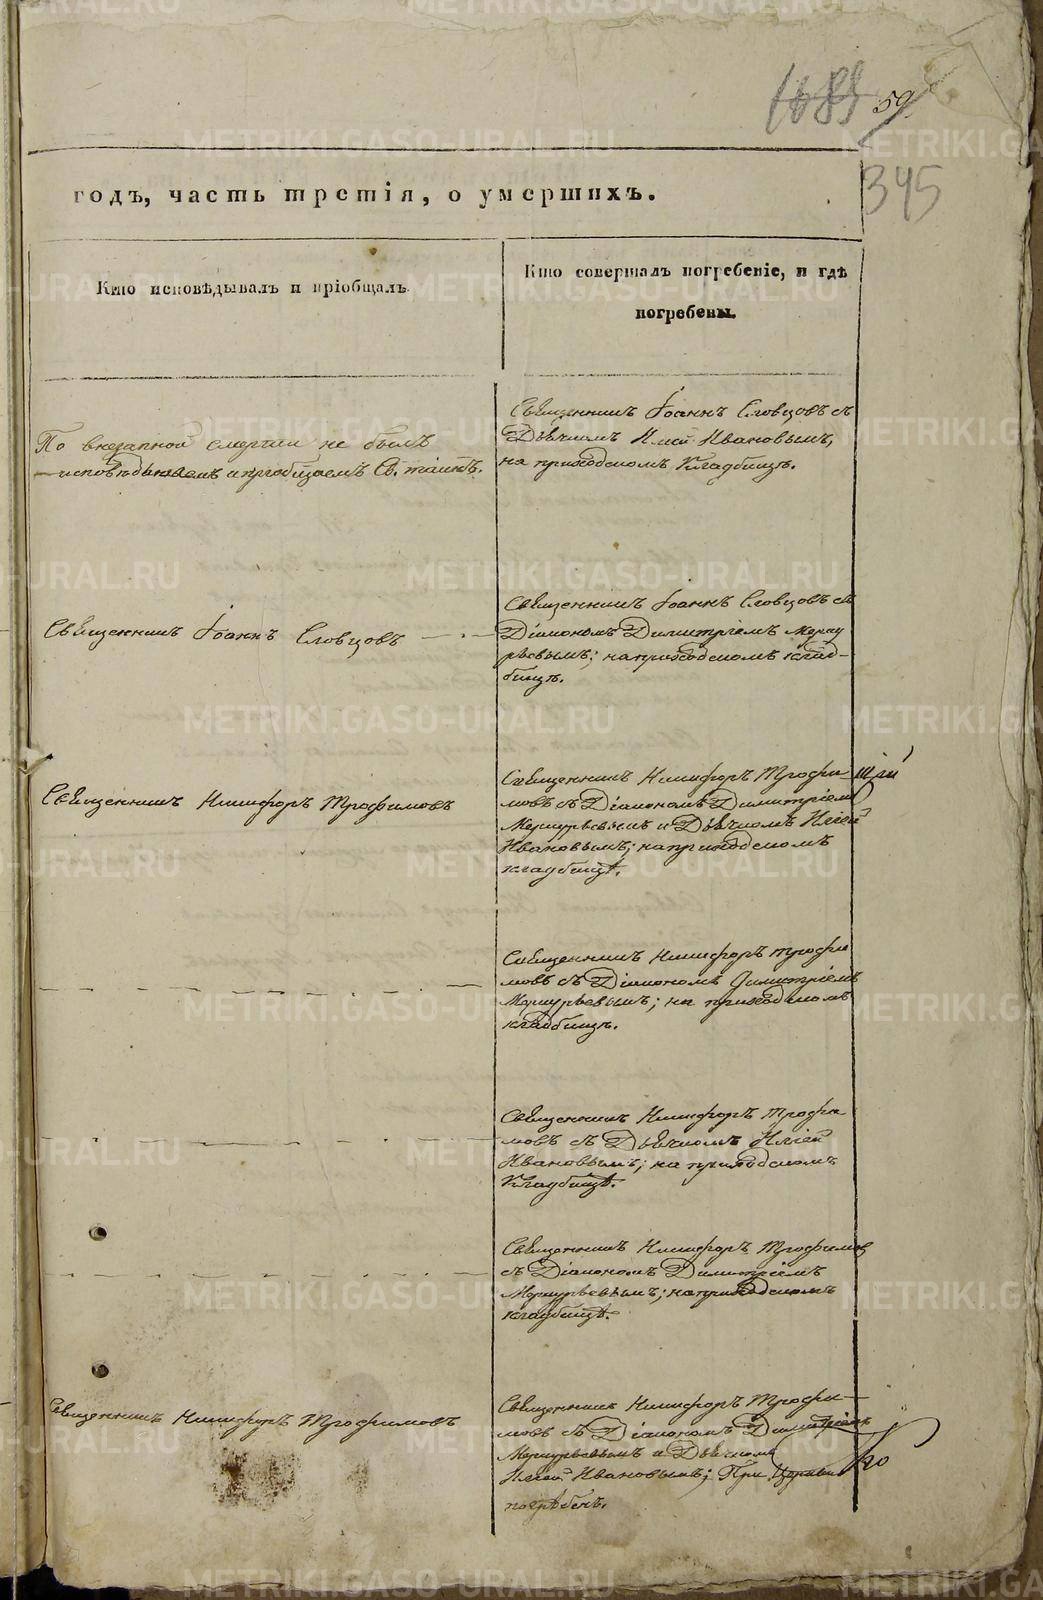 1688 59
345
годъ, часть третія, о умершихъ.
Кто исповѣдывалъ и пріобщалъ.
Кто совершалъ погребеніе, и гдѣ
погребены.
По внезапной смерти не былъ
исповѣдываемъ и пріобщаемъ Св. таинъ.
Священникъ Іоаннъ Словцовъ съ
Дьячкомъ Иліей Ивановымъ,
на приходскомъ кладбищѣ.
Священникъ Іоаннъ Словцовъ
Священникъ Іоаннъ Словцовъ съ
Діакономъ Димитріемъ Мерку
рьевымъ; на приходскомъ клад-
бищѣ.
Священникъ Никифоръ Трофимовъ
Священникъ Никифоръ Трофи-
мовъ съ Діакономъ Димитріемъ
Меркурьевымъ и Дьячкомъ Иліей
Ивановымъ; на приходскомъ
кладбищѣ.
Священникъ Никифоръ Трофи
мовъ съ Діакономъ Димитріемъ
Меркурьевымъ; на приходскомъ
кладбищѣ.
Священникъ Никифоръ Трофи
мовъ съ Дьячкомъ Иліей
Ивановымъ; на приходскомъ
кладбищѣ.
Священникъ Никифоръ Трофимовъ
съ Діакономъ Димитріемъ
Меркурьевымъ; на приходскомъ
кладбищѣ.
Священникъ Никифоръ Трофимовъ
Священникъ Никифоръ Трофи-
мовъ съ Діакономъ Димитріемъ
Меркурьевымъ и Дьячкомъ
Иліей Ивановымъ; При Церкви
погребенъ.
METRIKI.GASO-URAL.RU